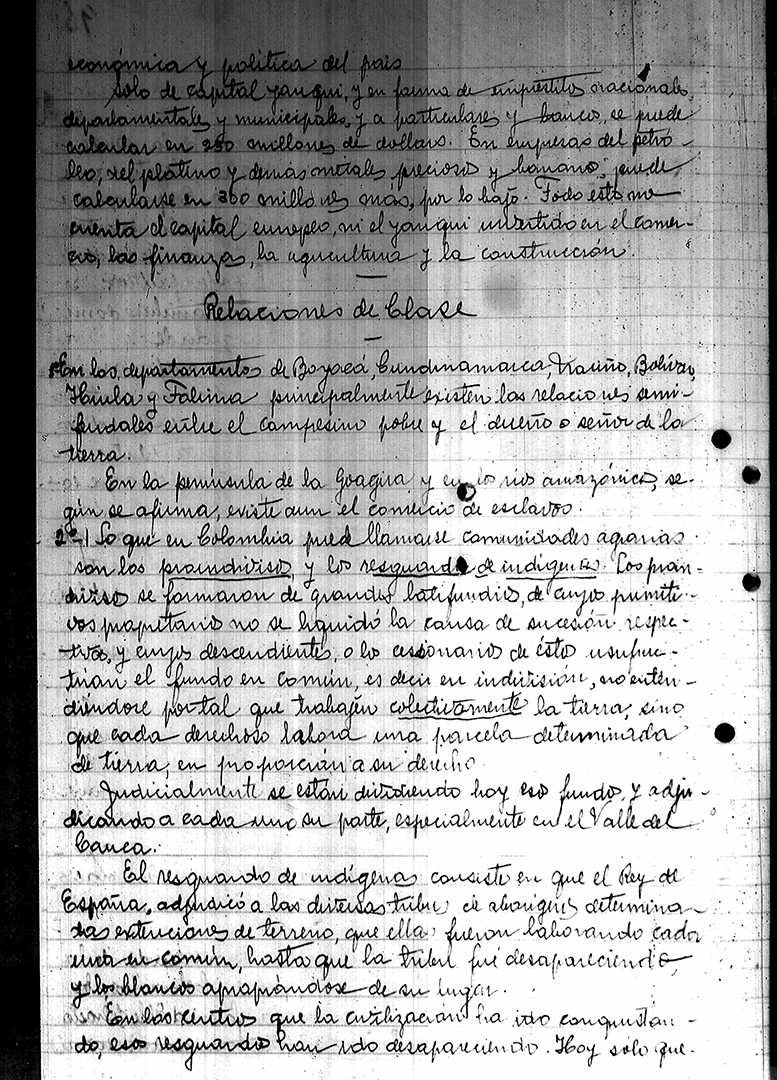 económica y política del país
Solo de capital yanqui, y en forma de empréstitos nacionales,
departamentales y municipales, y a particulares y bancos, se puede
calcular en 250 millones de dollars. En empresas del petró-
leo, del platino y demás metales preciosos y banano, puede
calcularse en 300 millones más, por lo bajo. Todo esto no
cuenta el capital europeo, ni el yanqui invertido en el comer-
cio, las finanzas, la agricultura y la construcción.
Relaciones de Clase
En los departamentos de Boyacá, Cundinamarca, Nariño, Bolívar,
Huila y Tolima principalmente existen las relaciones semi-
feudales entre el campesino pobre y el dueño o señor de la
tierra.
En la península de la Goagira y en los rios amazónicos, se-
gún se afirma, existe aun el comercio de esclavos.
2º-| Lo que en Colombia puede llamarse comunidades agrarias
son los proindivisos, y los resguardos de indigenas. Los proin-
divisos se formaron de grandes latifundios, de cuyos primiti-
vos propietarios no se liquidó la causa de sucesión respec-
tiva, y cuyos descendientes, o los cesionarios de éstos usufruc-
túan el fundo en común, es decir en indivisión, no enten-
diéndose por tal que trabajen colectivamente la tierra, sino
que cada derechoso labora una parcela determinada
de tierra, en proporción a su derecho.
Judicialmente se están dividiendo hoy esos fundos, y adju-
dicando a cada uno su parte, especialmente en el Valle del
Cauca.
El resguardo de indígenas consiste en que el Rey de
España, adjudicó a las diversas tribus de aborígenes determina-
das extenciones de terreno, que ellas fueron laborando cada
una en común, hasta que la tribu fué desapareciendo,
y los blancos apropiándose de su lugar.
En los centros que la civilización ha ido conquistan-
do, esos resguardos han ido desapareciendo. Hoy sólo que-